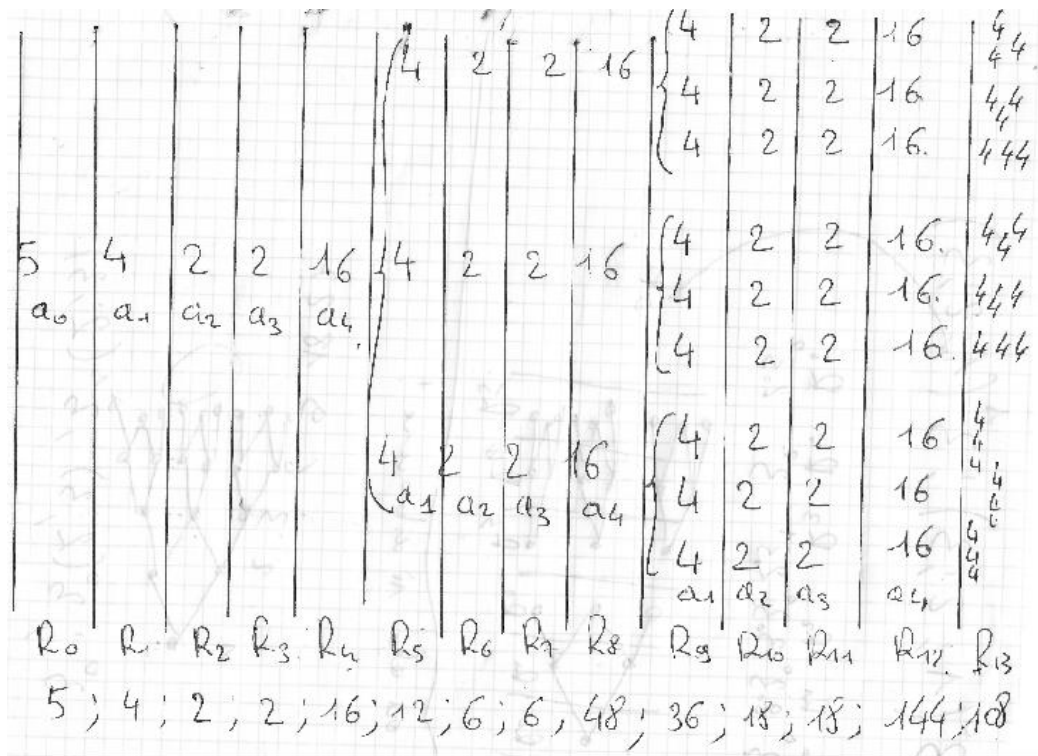 4 2 2 16 4 4 4
4 2 2 16
4 2 2 16 4 4 4
4 2 2 16. 4 4 4
4 2 2 16. 4 4 4
5 4 2 2 16 4 2 2 16
4 2 2 16. 4 4 4
a0 a1 a2 a3 a4
4 2 2 16. 4 4 4
4 2 2 16 4 4 4
4 2 2 16
a1 a2 a3 a4
4 2 2 16 4 4 4
4 2 2 16 4 4 4
a1 a2 a3 a4
R0 R1 R2 R3 R4 R5 R6 R7 R8 R9 R10 R11 R12 R13
5; 4; 2; 2; 16; 12; 6; 6, 48; 36; 18; 18; 144; 108